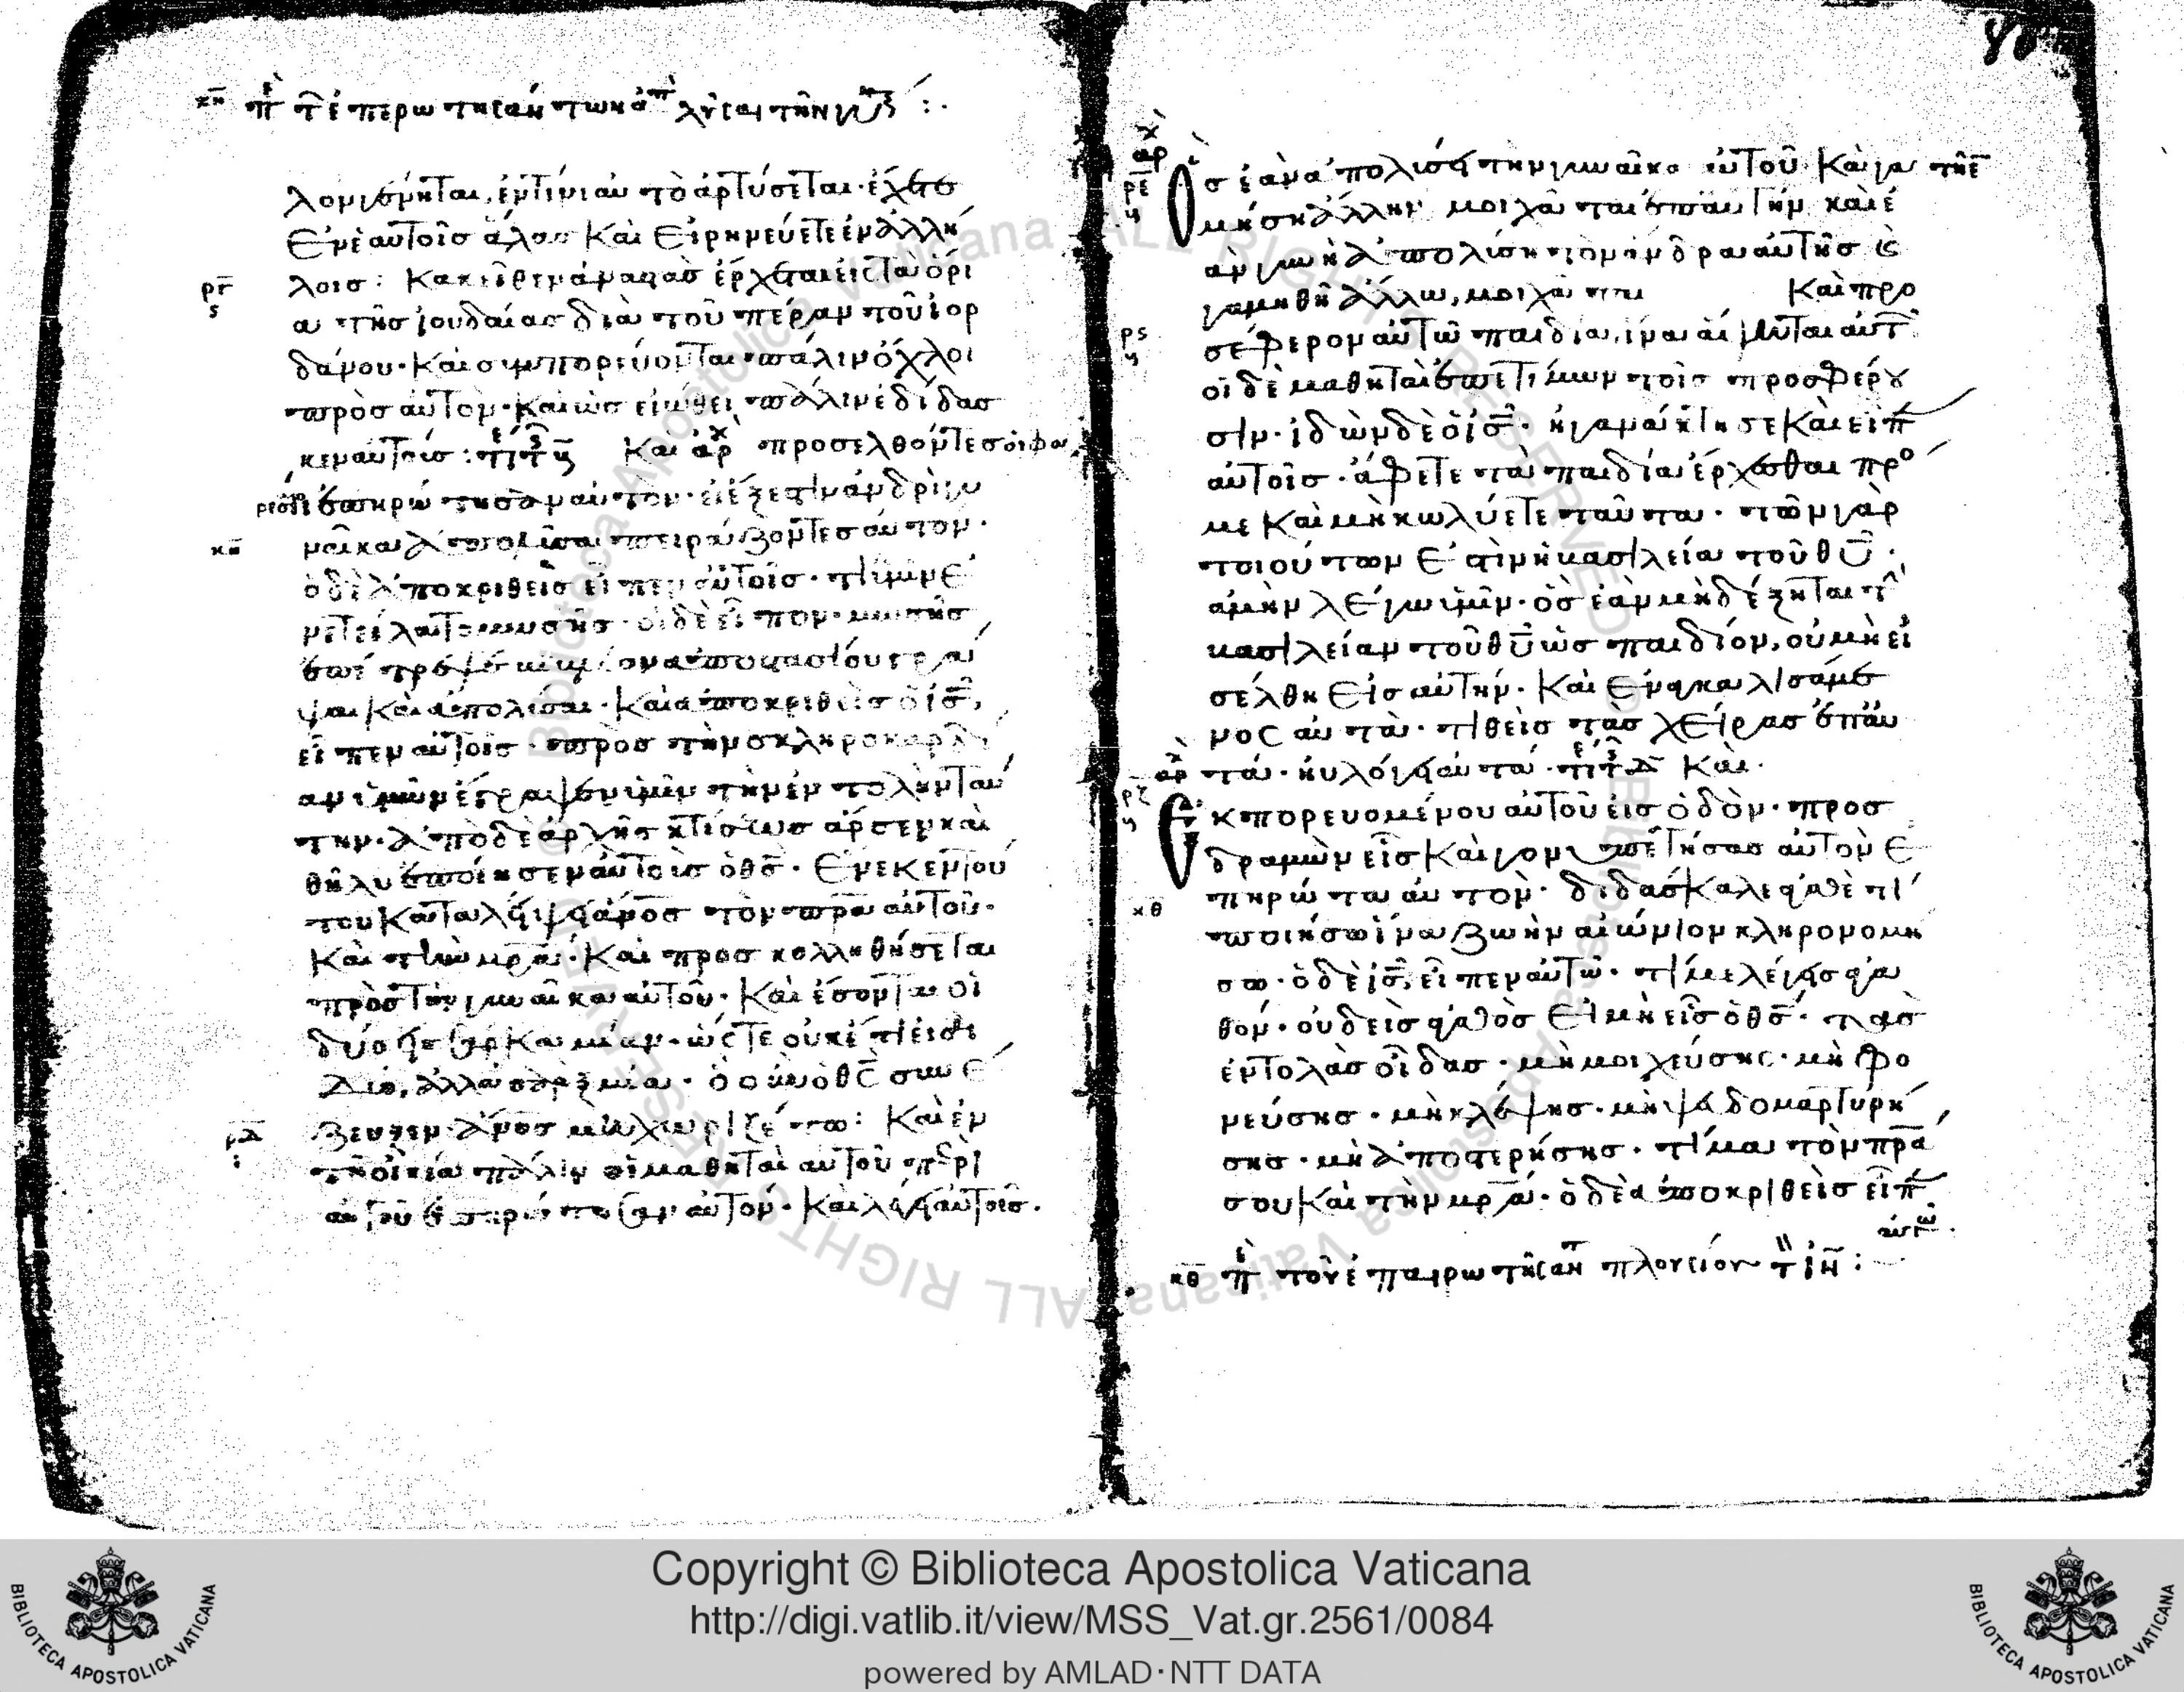 κη πε τ ἐπερωτησάν των ἀπολῦσαι τὴν γυν :.
λον γένηται, ἐν τίνι αυτὸ ἀρτύσεται· ἔχετε
ἐν ἑαυτοῖσ ἅλας καὶ εἰρηνεύετε ἐν ἀλλή
λοισ : Κακεῖθεν ἀναστὰσ ἔρχεται εἰς τὰ ὅρι
α τῆσ ἰουδαίασ διὰ τοῦ πέραν τοῦ ἰορ
δάνου· καὶ συμπορεύονται πάλιν ὄχλοι
πρὸσ αὐτὸν· καὶ ὡσ εἰώθει, πάλιν ἐδίδασ
κεν αὐτοίσ : Καὶ προσελθόντεσ οἱ φα
ρισαῖοι ἐπηρώτησαν αὐτον· εἰ ἔξεστιν ἀνδρὶ γυ
ναῖκα ἀπολῦσαι πειράζοντεσ αὐτον·
ὁ δὲ ἀποκριθεὶσ εἶπεν αὐτοῖσ· τί ὑμῖν ἐ
νετείλατο μωσῆσ· οἱ δὲ εἶπον· μωσῆσ
ἐπέτρεψε βιβλίον ἀποστασίου γρά
ψαι καὶ ἀπολύσαι· καὶ ἀποκριθεὶσ ὁ ἰς,
εἶπεν αὐτοῖσ· πρὸσ τὴν σκληροκαρδί
αν ὑμῶν ἔγραψεν ὑμῖν τὴν ἐντολὴν ταύ
την· ἀπὸ δὲ ἀρχῆσ κτίσεωσ ἄρσεν καὶ
θῆλυ ἐποίησεν αὐτοὺσ ὁ θς· ἕνεκεν τού
του καταλείψει ἄνοσ τὸν πρα αὐτοῦ·
καὶ τὴν μρα· καὶ προσκολληθήσεται
πρὸσ τὴν γυναῖκα αὐτοῦ· καὶ ἔσονται οἱ
δύο εἰσ σάρκα μίαν· ὥστε οὐκέτι εἰσὶ
δύο, ἀλλὰ σὰρξ μία· ὃ οὖν ὁ θς συνέ
ζευξεν ἄνοσ μὴ χωριζέτω : Καὶ ἐν
τῆ οἰκία πάλιν οἱ μαθηταὶ αὐτοῦ περὶ
αὐτοῦ ἐπηρώτησαν αὐτόν· καὶ λέγει αὐτοῖσ·
Οσ ἐὰν ἀπολύσει την γυναῖκα αὐτοῦ καὶ γα
μήση ἄλλην μοιχᾶται ἐπ αυτήν καὶ ἐ
ὰν γυνὴ ἀπολύση τὸν ἄνδρα αὐτῆσ καὶ
γαμηθῆ ἄλλω, μοιχᾶται Καὶ προ
σέφερον αὐτῶ παιδία, ἵνα ἅψηται αὐτ
οἱ δὲ μαθηταὶ ἐπετίμων τοῖσ προσφέρου
σιν· ἰδὼν δὲ ὁ ἰς· ἠγανάκτησε καὶ εἶπ
αὐτοῖσ· ἄφετε τὰ παιδία ἔρχεσθαι πρό
με καὶ μὴ κωλύετε ταῦτα· τῶν γὰρ
τοιούτων ἐστὶν ἡ βασιλεία τοῦ θυ·
ἀμὴν λέγω ὑμῖν· ὃσ ἐὰν μὴ δέξηται τ
βασιλείαν τοῦ θυ ὡσ παιδίον, οὐ μὴ εἰ
σέλθη εἰσ αὐτήν· καὶ ἐναγκαλισάμε
νος αὐτὰ· τιθεὶσ τὰσ χεῖρασ ἐπ αὐ
τά· ηὐλόγει αὐτά· Καὶ·
Ἐκπορευομένου αὐτοῦ εἰσ ὁδὸν· προσ
δραμὼν εἷσ καὶ γονυπετήσασ αὐτὸν ἐ
πηρώτα αὐτὸν· διδάσκαλε ἀγαθὲ τί
ποιήσω ἵνα ζωὴν αἰώνιον κληρονομή
σω· ὁ δὲ ἰς, εἶπεν αὐτῶ· τί με λέγεισ ἀγα
θόν· οὐδεὶσ ἀγαθὸσ εἰ μὴ εἷσ ὁ θς· τὰσ
ἐντολὰσ οἶδασ· μὴ μοιχεύσης· μὴ φο
νεύσησ· μὴ κλέψησ· μὴ ψευδομαρτυρή
σησ· μὴ ἀποστερήσησ· τίμα τὸν πρα
σου καὶ τὴν μρα· ὁ δὲ ἀποκριθεὶσ εἶπ
αὐτῶ·
κθ πε τοῦ ἐπερωτήσαν πλουσίου τ ιν :
Copyright © Biblioteca Apostolica Vaticana
http://digi.vatlib.it/view/MSS_Vat.gr.2561/0084
powered by AMLAD·NTT DATA